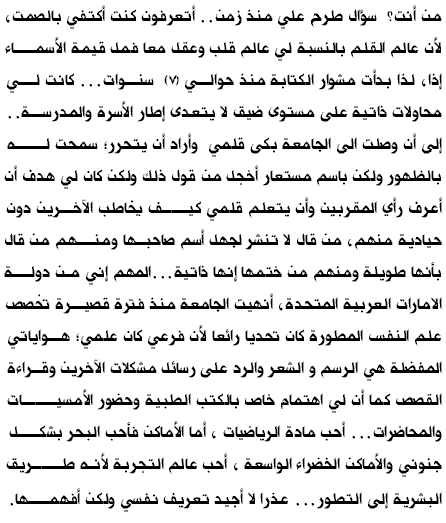 من أنت؟ سؤال طرح علي منذ زمن.. أتعرفون كنت أكتفي بالصمت،
لأن عالم القلم بالنسبة لي عالم قلب وعقل معا فما قيمة الأسماء
إذا، لذا بدأت مشوار الكتابة منذ حوالي (٧) سنوات... كانت لي
محاولات ذاتية على مستوى ضيق لا يتعدى إطار الأسرة والمدرسة..
إلى أن وصلت الى الجامعة بكى قلمي وأراد أن يتحرر؛ سمحت له
بالظهور ولكن باسم مستعار أخجل من قول ذلك ولكن كان لي هدف أن
أعرف رأي المقربين وأن يتعلم قلمي كيف يخاطب الآخرين دون
حيادية منهم، من قال لا تنشر لجهل أسم صاحبها ومنهم من قال
بأنها طويلة ومنهم من ختمها إنها ذاتية...المهم إني من دولة
الامارات العربية المتحدة، أنهيت الجامعة منذ فترة قصيرة تخصص
علم النفس المطورة كان تحديا رائعا لأن فرعي كان علمي؛ هواياتي
المفضلة هي الرسم و الشعر والرد على رسائل مشكلات الآخرين وقراءة
القصص كما أن لي اهتمام خاص بالكتب الطبية وحضور الأمسيات
والمحاضرات... أحب مادة الرياضيات ، أما الأماكن فأحب البحر بشكل
جنوني والأماكن الخضراء الواسعة ، أحب عالم التجربة لأنه طريق
البشرية إلى التطور... عذرا لا أجيد تعريف نفسي ولكن أفهمها.